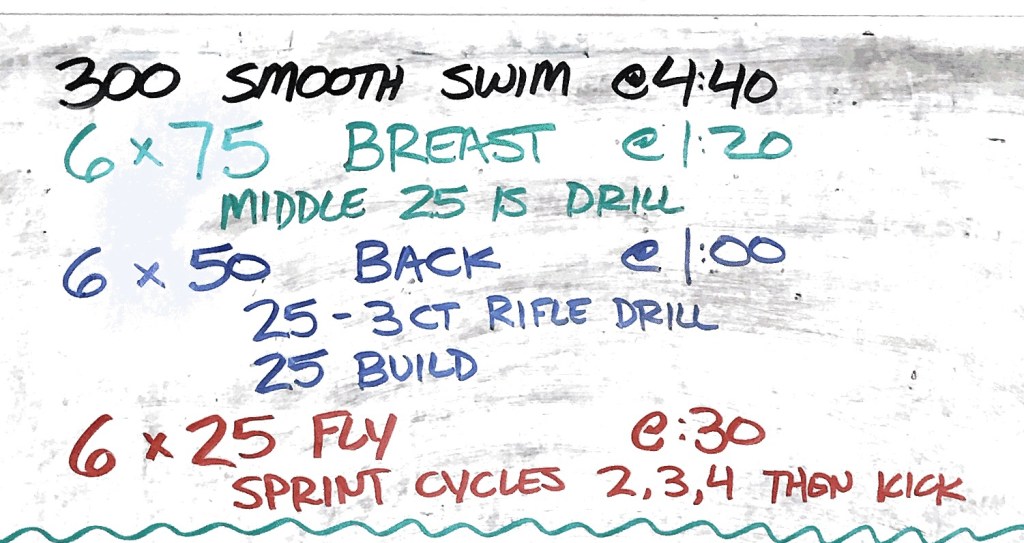 300 SMOOTH SWIM @4:40
6 x 75 BREAST @ 1:20
MIDDLE 25 IS DRILL
6 x 50 BACK @ 1:00
25 - 3CT RIFLE DRILL
25 BUILD
6 x 25 FLY @ :30
SPRINT CYCLES 2,3,4 THEN KICK